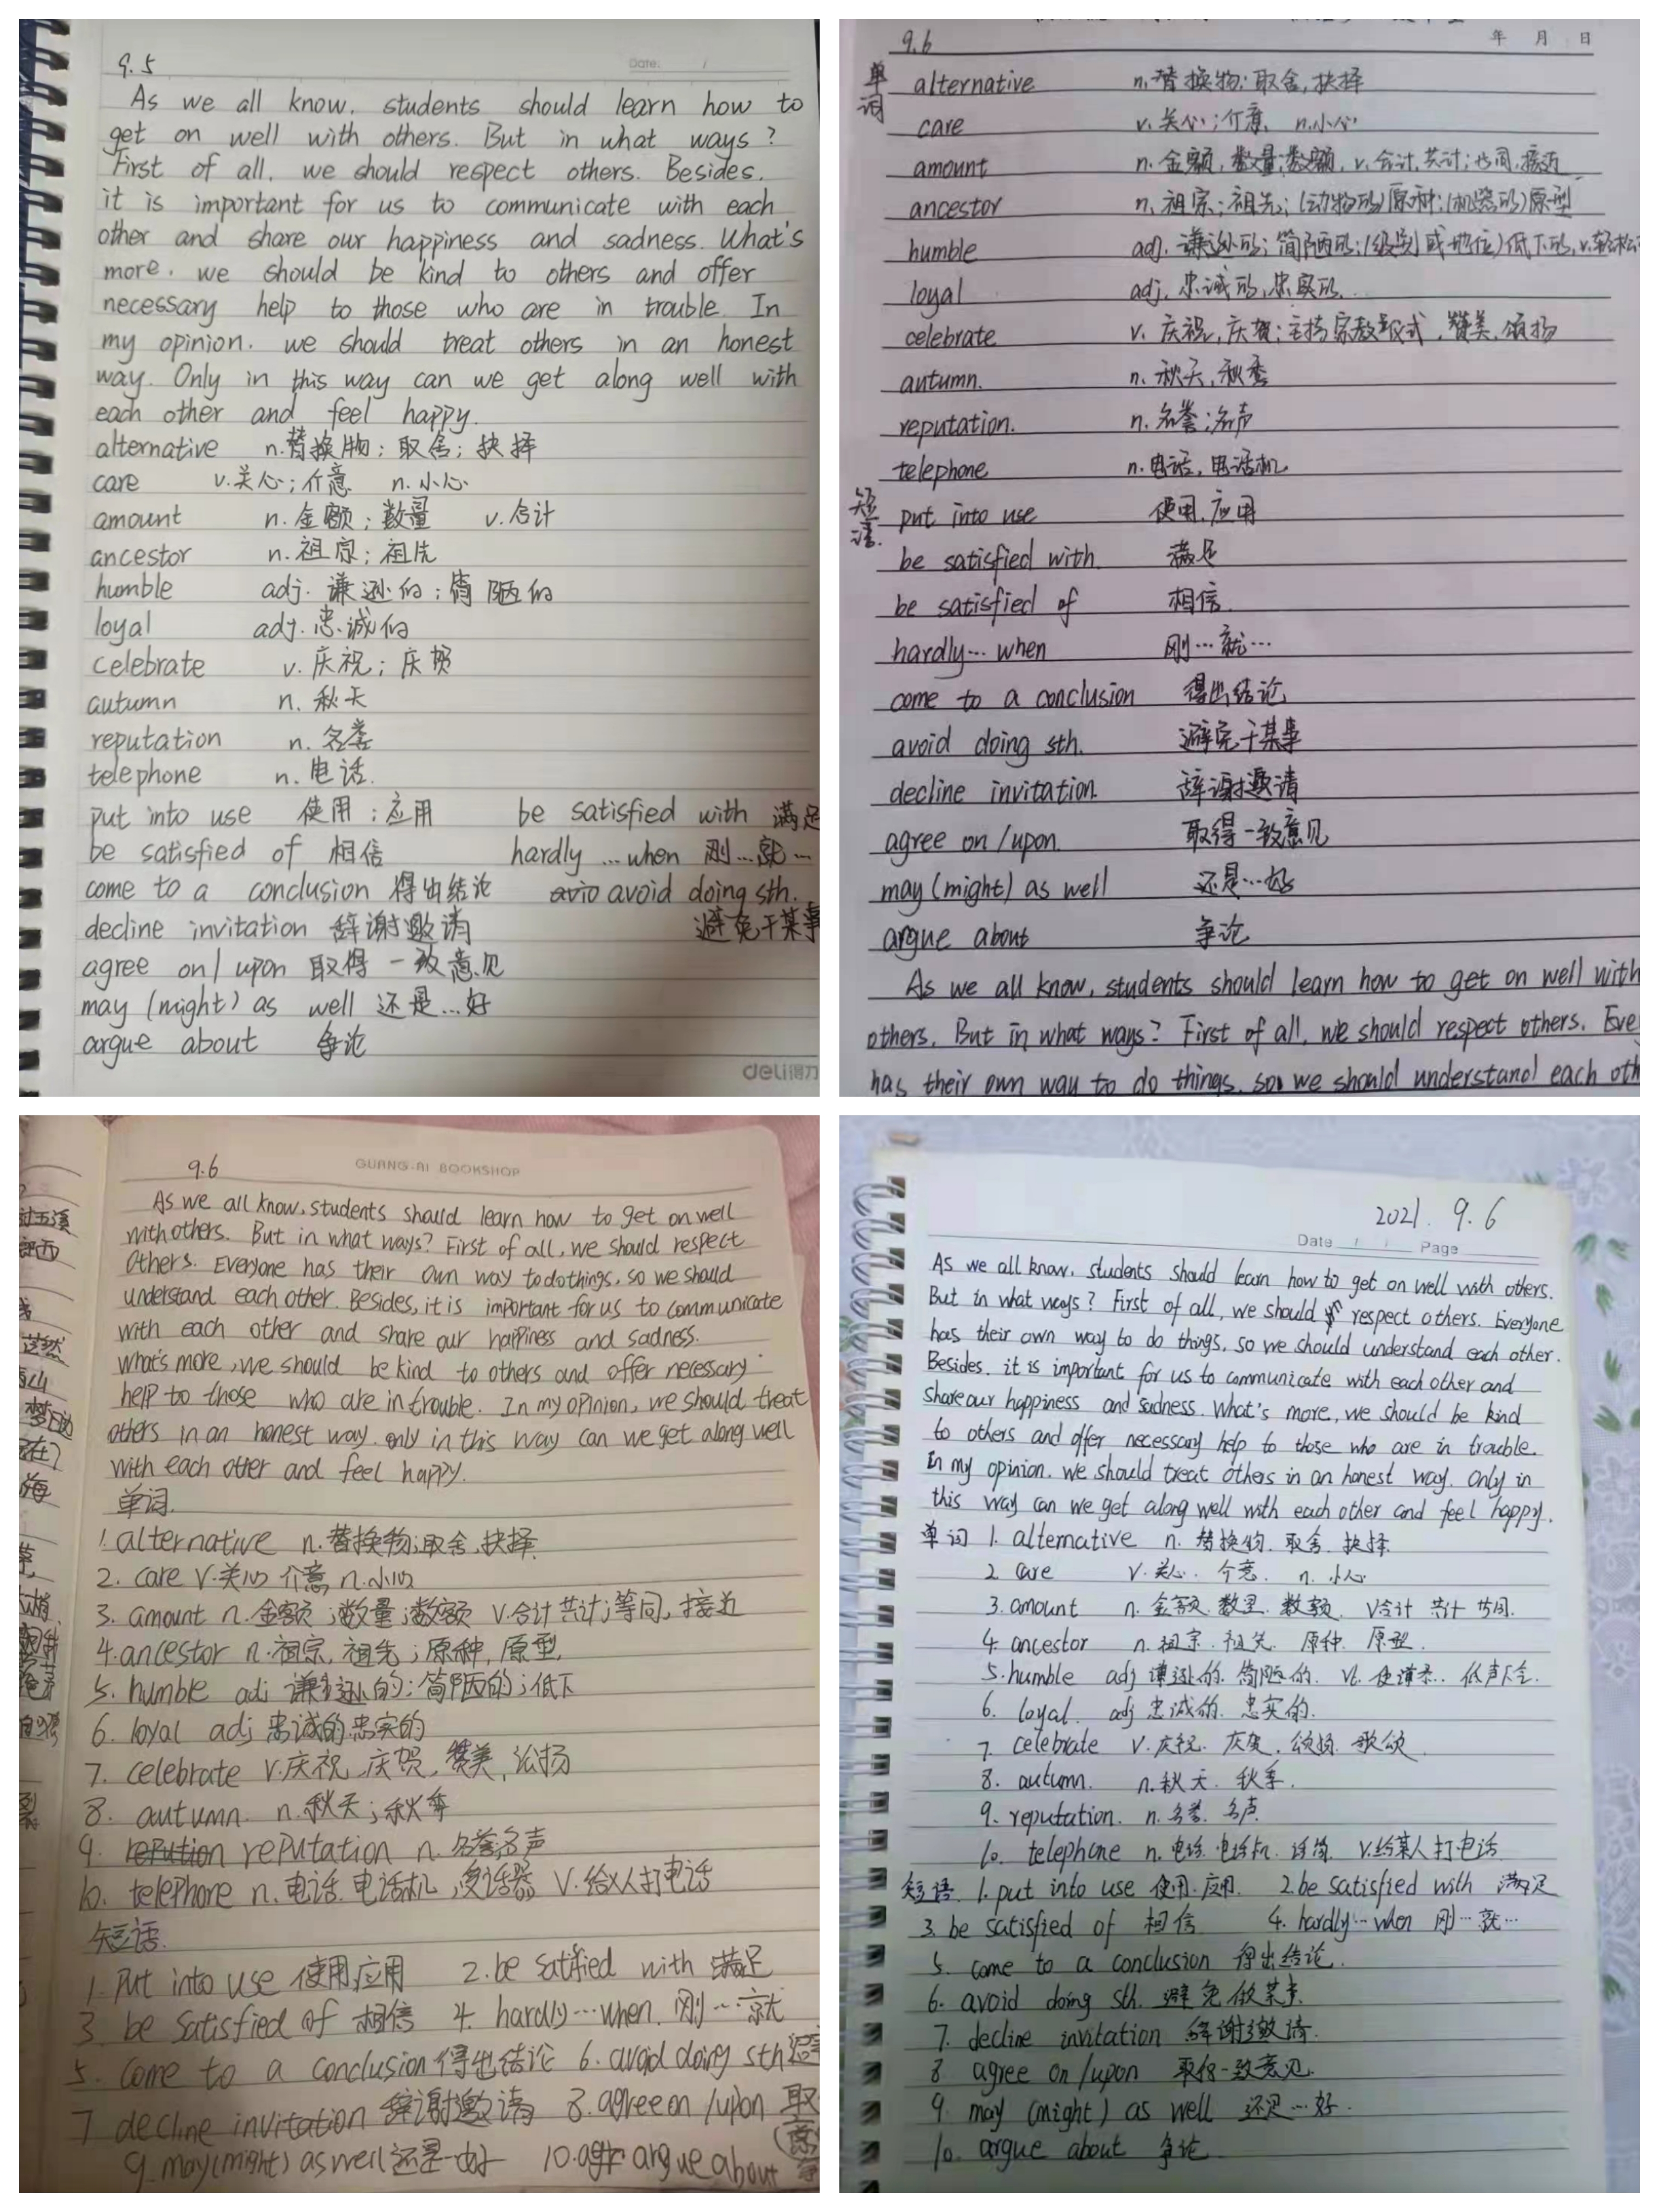 9.5
Date: /
As we all know, students should learn how to
get on well with others. But in what ways?
First of all, we should respect others. Besides,
it is important for us to communicate with each
other and share our happiness and sadness. What's
more, we should be kind to others and offer
necessary help to those who are in trouble. In
my opinion, we should treat others in an honest
way. Only in this way can we get along well with
each other and feel happy.
alternative n.替换物；取舍；抉择
care v.关心；介意 n.小心
amount n.金额；数量 v.合计
ancestor n.祖宗；祖先
humble adj.谦逊的；简陋的
loyal adj.忠诚的
celebrate v.庆祝；庆贺
autumn n.秋天
reputation n.名誉
telephone n.电话.
put into use 使用；应用 be satisfied with 满足
be satisfied of 相信 hardly …when 刚…就…
come to a conclusion 得出结论 avoid doing sth.
decline invitation 辞谢邀请 避免干某事
agree on/upon 取得一致意见
may (might) as well 还是…好
argue about 争论
deli得力
9.6
年 月 日
单词
alternative n.替换物；取舍，抉择
care v.关心；介意 n.小心
amount n.金额，数量；数额，v.合计，共计；接近
ancestor n.祖宗；祖先；(动物的)原种；(机器的)原型
humble adj.谦逊的；简陋的；(级别或地位)低下的，v.轻松
loyal adj.忠诚的，忠实的.
celebrate v.庆祝，庆贺；主持宗教仪式，赞美，颂扬
autumn. n.秋天，秋季
reputation. n.名誉；名声
telephone n.电话，电话机
短语.
put into use 使用，应用
be satisfied with. 满足
be satisfied of 相信.
hardly… when 刚…就…
come to a conclusion 得出结论
avoid doing sth. 避免干某事
decline invitation. 辞谢邀请
agree on/upon. 取得一致意见
may (might) as well 还是…好
argue about 争论
As we all know, students should learn how to get on well with
others. But in what ways? First of all, we should respect others. Eve
has their own way to do things, so we should understand each oth
9.6
GUANG-AI BOOKSHOP
As we all know, students should learn how to get on well
with others. But in what ways? First of all, we should respect
others. Everyone has their own way to do things, so we should
understand each other. Besides, it is important for us to communicate
with each other and share our happiness and sadness.
what's more, we should be kind to others and offer necessary
help to those who are in trouble. In my opinion, we should treat
others in an honest way. only in this way can we get along well
with each other and feel happy.
单词.
1. alternative n.替换物；取舍，抉择.
2. care v.关心 介意 n.小心
3. amount n.金额；数量；数额 v.合计 共计；等同，接近
4. ancestor n.祖宗，祖先；原种，原型，
5. humble adj 谦逊的；简陋的；低下
6. loyal adj 忠诚的.忠实的
7. celebrate v.庆祝，庆贺，赞美，
8. autumn. n.秋天；秋季
9. repution reputation n.名誉名声
10. telephone n.电话.电话机，受话器 v.给人打电话
短语.
1. Put into use 使用应用 2. be satified with 满足
3. be satisfied of 相信 4. hardly…when. 刚…就
5. come to a conclusion 得出结论 6. avoid doing sth 避
7 decline invitation 辞谢邀请 8. agree on /upon 取
9. may(might) as well 还是…好 10. argue about
2021. 9.6
Date / / Page
As we all know, students should learn how to get on well with others.
But in what ways? First of all, we should respect others. Everyone
has their own way to do things, so we should understand each other.
Besides, it is important for us to communicate with each other and
share our happiness and sadness. What's more, we should be kind
to others and offer necessary help to those who are in trouble.
In my opinion, we should treat others in an honest way. Only in
this way can we get along well with each other and feel happy.
单词 1. alternative n. 替换物. 取舍. 抉择.
2. care v.关心. 介意. n. 小心.
3. amount n. 金额. 数量. 数额. v合计 共计
4. ancestor n.祖宗. 祖先. 原种. 原型.
5. humble adj 谦逊的. 简陋的. vt. 低声下气.
6. loyal. adj 忠诚的. 忠实的.
7. celebrate v.庆祝. 庆贺. 颂扬. 歌颂.
8. autumn. n.秋天. 秋季.
9. reputation. n.名誉. 名声.
10. telephone n.电话. 电话机. 话筒. v.给某人打电话
短语. 1. put into use 使用.应用. 2. be satisfied with 满足
3. be satisfied of 相信 4. hardly…when 刚…就…
5. come to a conclusion 得出结论.
6. avoid doing sth. 避免做某事.
7. decline invitation 辞谢邀请.
8 agree on/upon 取得一致意见.
9. may (might) as well 还是…好.
10. argue about 争论.